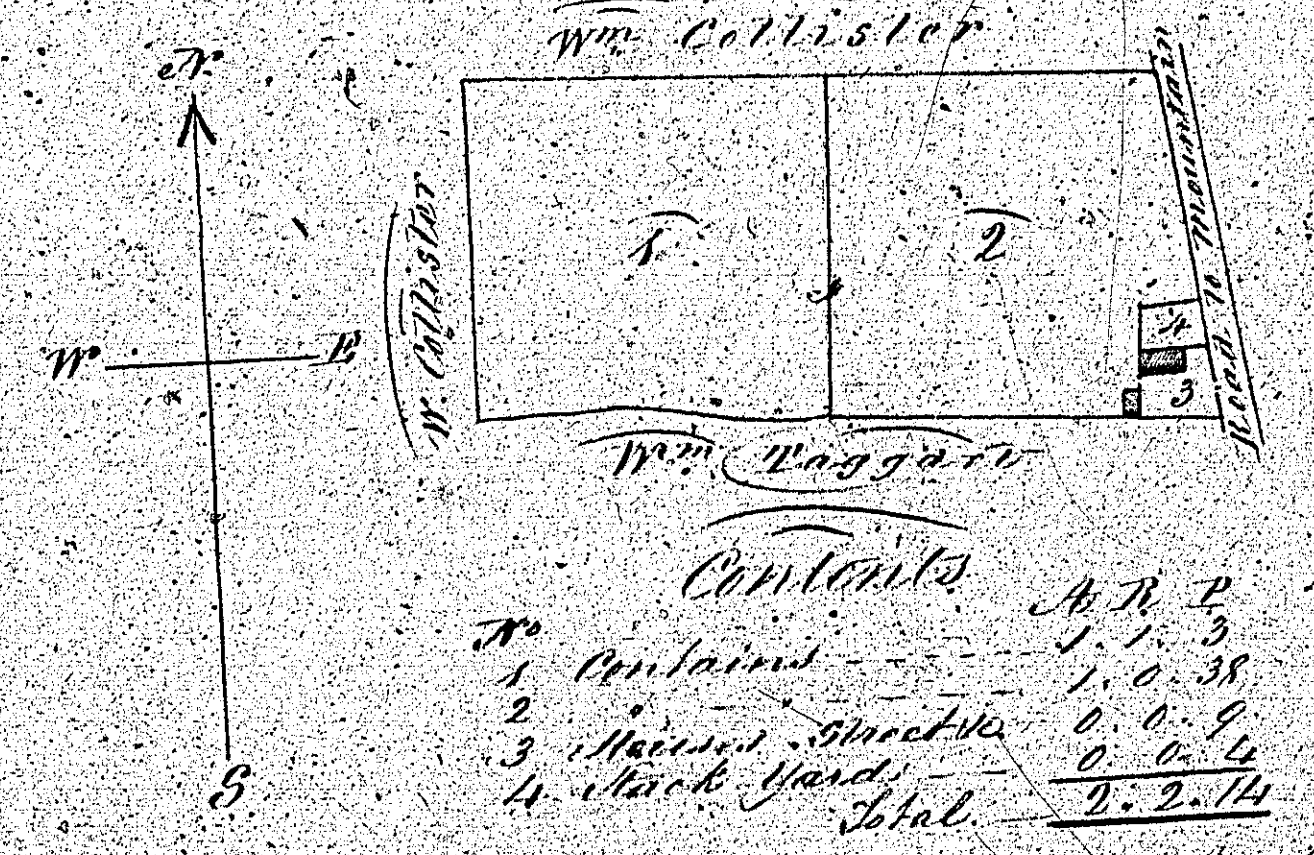 Wm Collister
N
W. Collister
1
2
Road to Mountain
W
E
4
3
Wm Taggart
S
Contents
No A R P
1 Contains 1. 1. 3
2 1. 0. 38
3 Houses Street &c 0. 0. 9
4 Stack Yard 0. 0. 4
Total 2. 2. 14